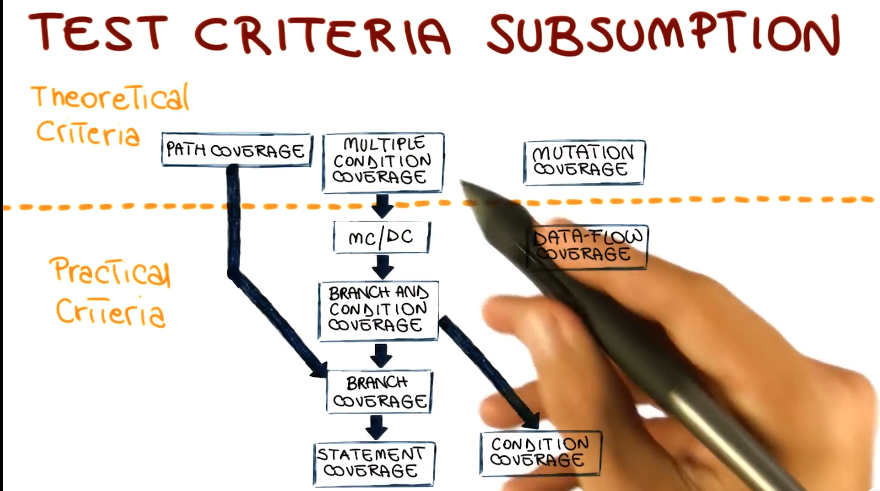 TEST CRITERIA SUBSUMPTION
Theoretical
Criteria
PATH COVERAGE
MULTIPLE
CONDITION
COVERAGE
MUTATION
COVERAGE
MC/DC
DATA-FLOW
COVERAGE
Practical
Criteria
BRANCH AND
CONDITION
COVERAGE
BRANCH
COVERAGE
STATEMENT
COVERAGE
CONDITION
COVERAGE